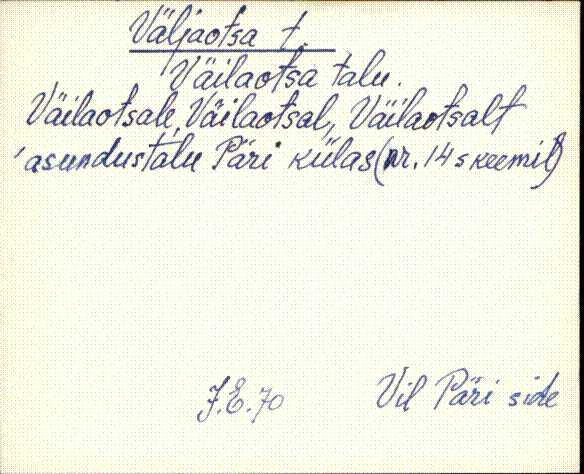 Väljaotsa t.
'Väilaotsa talu.
Väilaotsale, Väilaotsal, Väilaotsalt
'asundustalu Päri külas (nr. 14 skeemil)
J.E.70 Vil Päri side